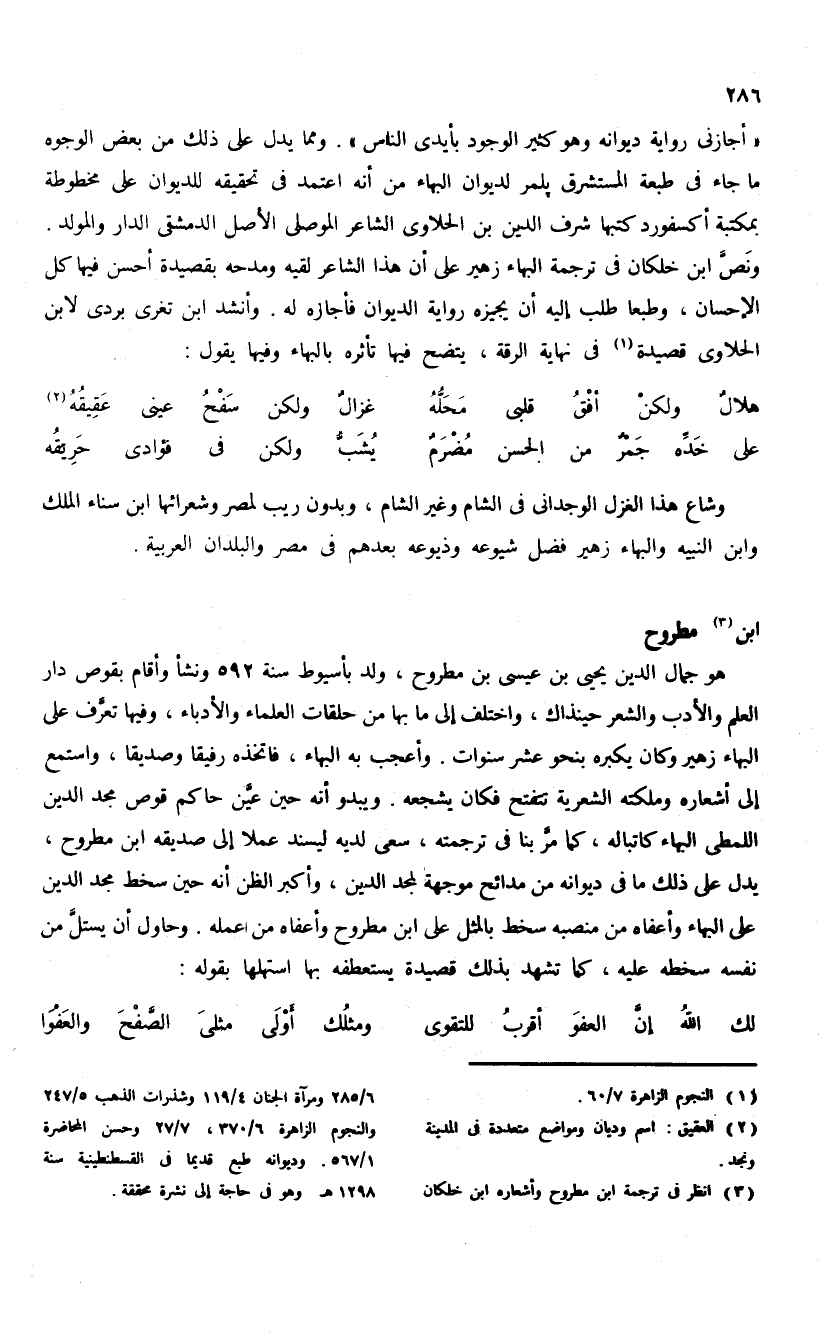 ٢٨٦
« أجازنى رواية ديوانه وهو كثير الوجود بأيدى الناس » . ومما يدل على ذلك من بعض الوجوه
ما جاء فى طبعة المستشرق پلمر لديوان البهاء من أنه اعتمد فى تحقيقه للديوان على مخطوطة
بمكتبة أكسفورد كتبها شرف الدين بن الحلاوى الشاعر الموصلى الأصل الدمشقى الدار والمولد .
ونَصَّ ابن خلكان فى ترجمة البهاء زهير على أن هذا الشاعر لقيه ومدحه بقصيدة أحسن فيها كل
الإحسان ، وطبعا طلب إليه أن يجيزه رواية الديوان فأجازه له . وأنشد ابن تغرى بردى لابن
الحلاوى قصيدة(١) فى نهاية الرقة ، يتضح فيها تأثره بالبهاء وفيها يقول :
هلالٌ ولكنْ أفْقُ قلبى مَحَلُّهُ غزالٌ ولكن سَفْحُ عينى عَقِيقُهُ(٢)
على خَدِّه جَمْرٌ من الحسن مُضْرَمٌ يُشَبُّ ولكن فى فؤادى حَرِيقُه
وشاع هذا الغزل الوجدانى فى الشام وغير الشام ، وبدون ريب لمصر وشعرائها ابن سناء الملك
وابن النبيه والبهاء زهير فضل شيوعه وذيوعه بعدهم فى مصر والبلدان العربية .
ابن (٣) مطروح
هو جمال الدين يحيى بن عيسى بن مطروح ، ولد بأسيوط سنة ٥٩٢ ونشأ وأقام بقوص دار
العلم والأدب والشعر حينذاك ، واختلف إلى ما بها من حلقات العلماء والأدباء ، وفيها تعرَّف على
البهاء زهير وكان يكبره بنحو عشر سنوات . وأعجب به البهاء ، فاتخذه رفيقا وصديقا ، واستمع
إلى أشعاره وملكته الشعرية تتفتح فكان يشجعه . ويبدو أنه حين عيَّن حاكم قوص مجد الدين
اللمطى البهاء كاتباله ، كما مرَّ بنا فى ترجمته ، سعى لديه ليسند عملا إلى صديقه ابن مطروح ،
يدل على ذلك ما فى ديوانه من مدائح موجهة لمجد الدين ، وأكبر الظن أنه حين سخط مجد الدين
على البهاء وأعفاه من منصبه سخط بالمثل على ابن مطروح وأعفاه من عمله . وحاول أن يستلَّ من
نفسه سخطه عليه ، كما تشهد بذلك قصيدة يستعطفه بها استهلها بقوله :
لك اللهُ إنَّ العفوَ أقربُ للتقوى ومثلُك أَوْلَى مثلىَ الصَّفْحَ والعَفْوَا
(١) النجوم الزاهرة ٦٠/٧ .
(٢) العقيق : اسم وديان ومواضع متعددة فى المدينة
ونجد .
(٣) انظر فى ترجمة ابن مطروح وأشعاره ابن خلكان
٢٨٥/٦ ومرآة الجنان ١١٩/٤ وشذرات الذهب ٢٤٧/٥
والنجوم الزاهرة ٣٧٠/٦ ، ٢٧/٧ وحسن المحاضرة
٥٦٧/١ . وديوانه طبع قديما فى القسطنطينية سنة
١٢٩٨ هـ وهو فى حاجة إلى نشرة محققة .